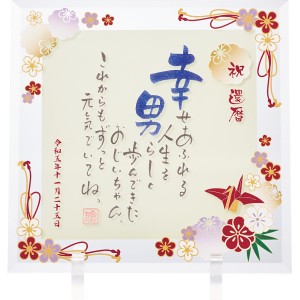 祝 還暦
幸せあふれる
人生を
男らしく
歩んできた
おじいちゃん。
これからもずっと
元気でいてね。
令和五年十一月二十五日